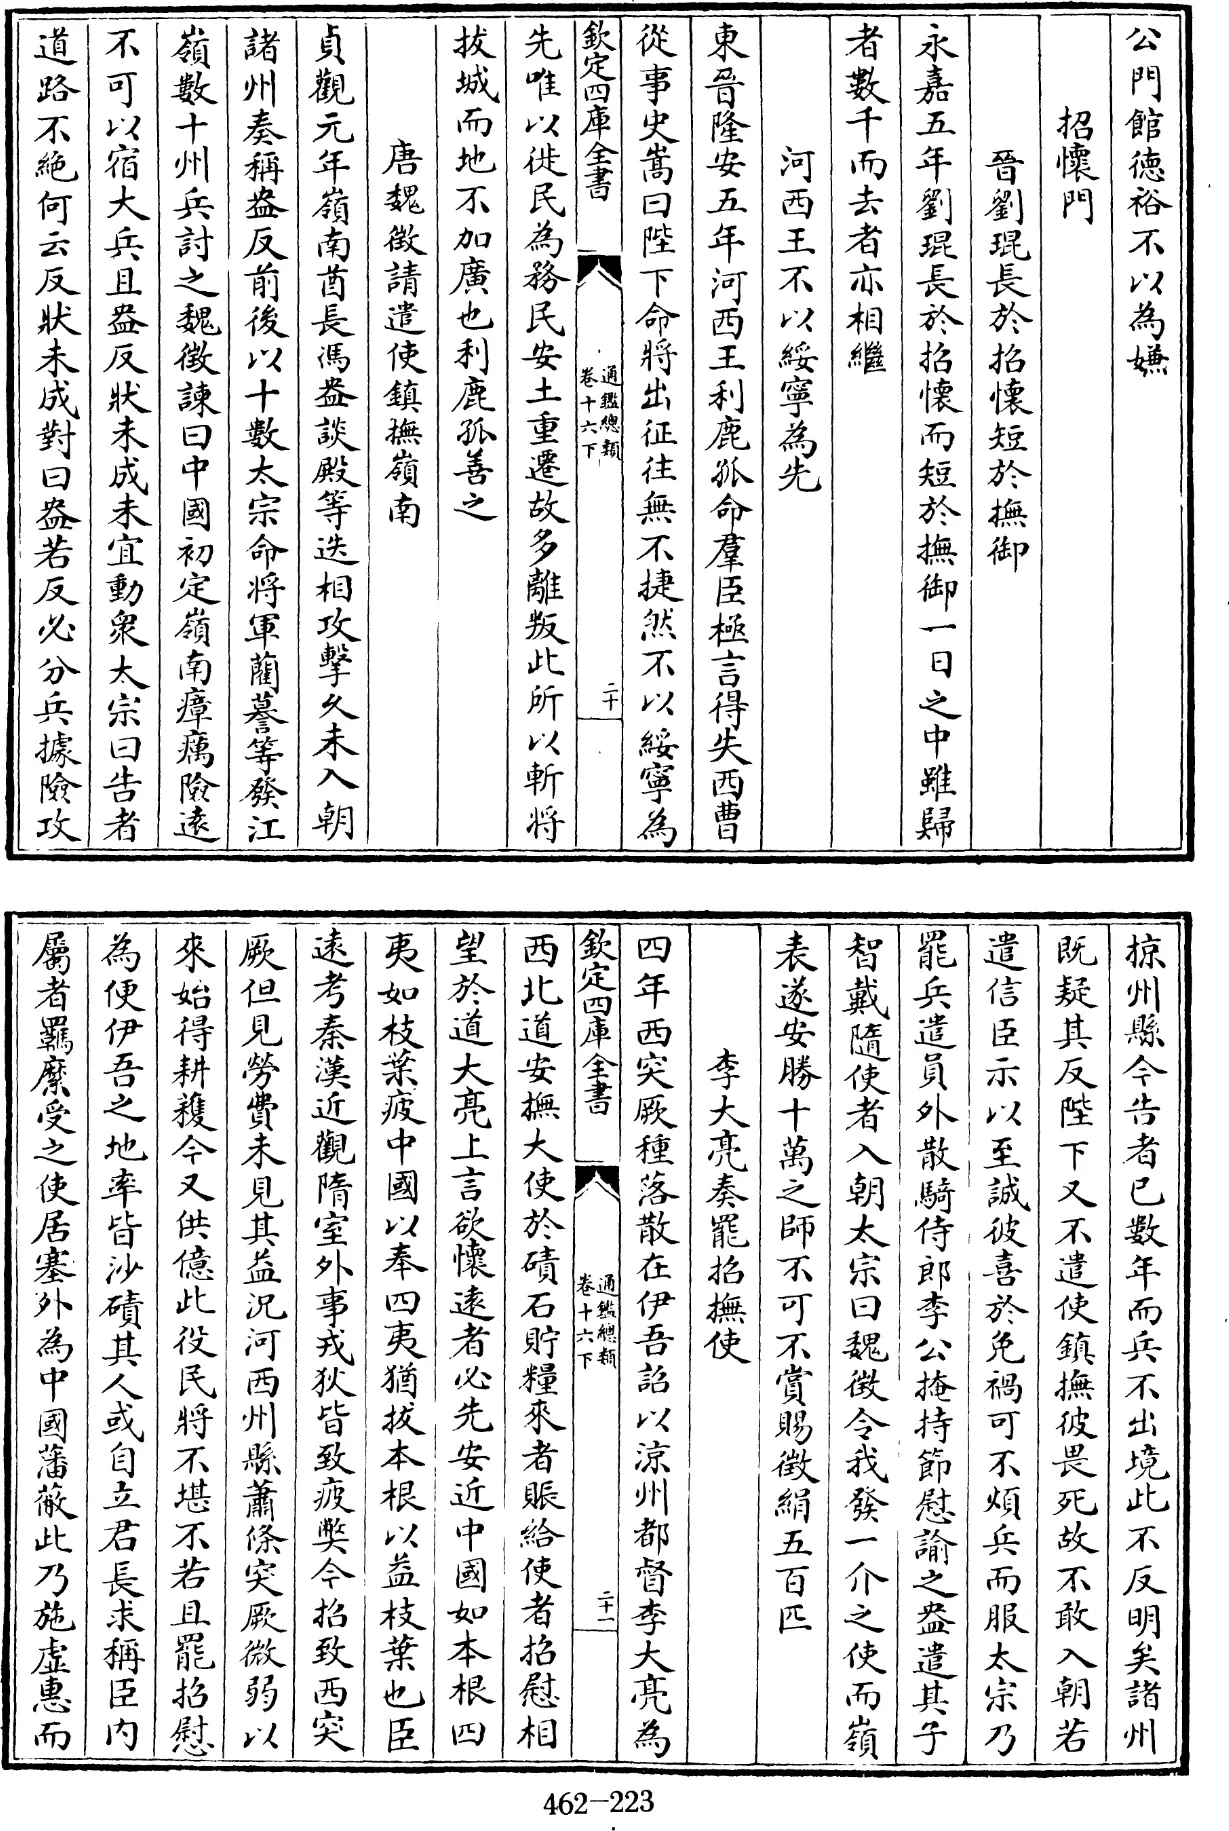 公門館德裕不以為嫌
招懷門
晉劉琨長於招懷短於撫御
永嘉五年劉琨長於招懷而短於撫御一日之中雖歸
者數千而去者亦相繼
河西王不以綏寧為先
東晉隆安五年河西王利鹿孤命羣臣極言得失西曹
從事史嵩曰陛下命將出征往無不捷然不以綏寧為
欽定四庫全書
通鑑總類
卷十六下
二十
先唯以徙民為務民安土重遷故多離叛此所以斬將
拔城而地不加廣也利鹿孤善之
唐魏徵請遣使鎮撫嶺南
貞觀元年嶺南酋長馮盎談殿等迭相攻擊久未入朝
諸州奏稱盎反前後以十數太宗命將軍藺謩等發江
嶺數十州兵討之魏徵諫曰中國初定嶺南瘴癘險遠
不可以宿大兵且盎反狀未成未宜動衆太宗曰告者
道路不絶何云反狀未成對曰盎若反必分兵據險攻
掠州縣今告者已數年而兵不出境此不反明矣諸州
既疑其反陛下又不遣使鎮撫彼畏死故不敢入朝若
遣信臣示以至誠彼喜於免禍可不煩兵而服太宗乃
罷兵遣員外散騎侍郎李公掩持節慰諭之盎遣其子
智戴隨使者入朝太宗曰魏徵令我發一介之使而嶺
表遂安勝十萬之師不可不賞賜徵絹五百匹
李大亮奏罷招撫使
四年西突厥種落散在伊吾詔以涼州都督李大亮為
欽定四庫全書
通鑑總類
卷十六下
二十一
西北道安撫大使於磧石貯糧來者賑給使者招慰相
望於道大亮上言欲懷遠者必先安近中國如本根四
夷如枝葉疲中國以奉四夷猶拔本根以益枝葉也臣
遠考秦漢近觀隋室外事戎狄皆致疲弊今招致西突
厥但見勞費未見其益況河西州縣蕭條突厥微弱以
來始得耕穫今又供億此役民將不堪不若且罷招慰
為便伊吾之地率皆沙磧其人或自立君長求稱臣内
屬者羈縻受之使居塞外為中國藩蔽此乃施虛惠而
462-223